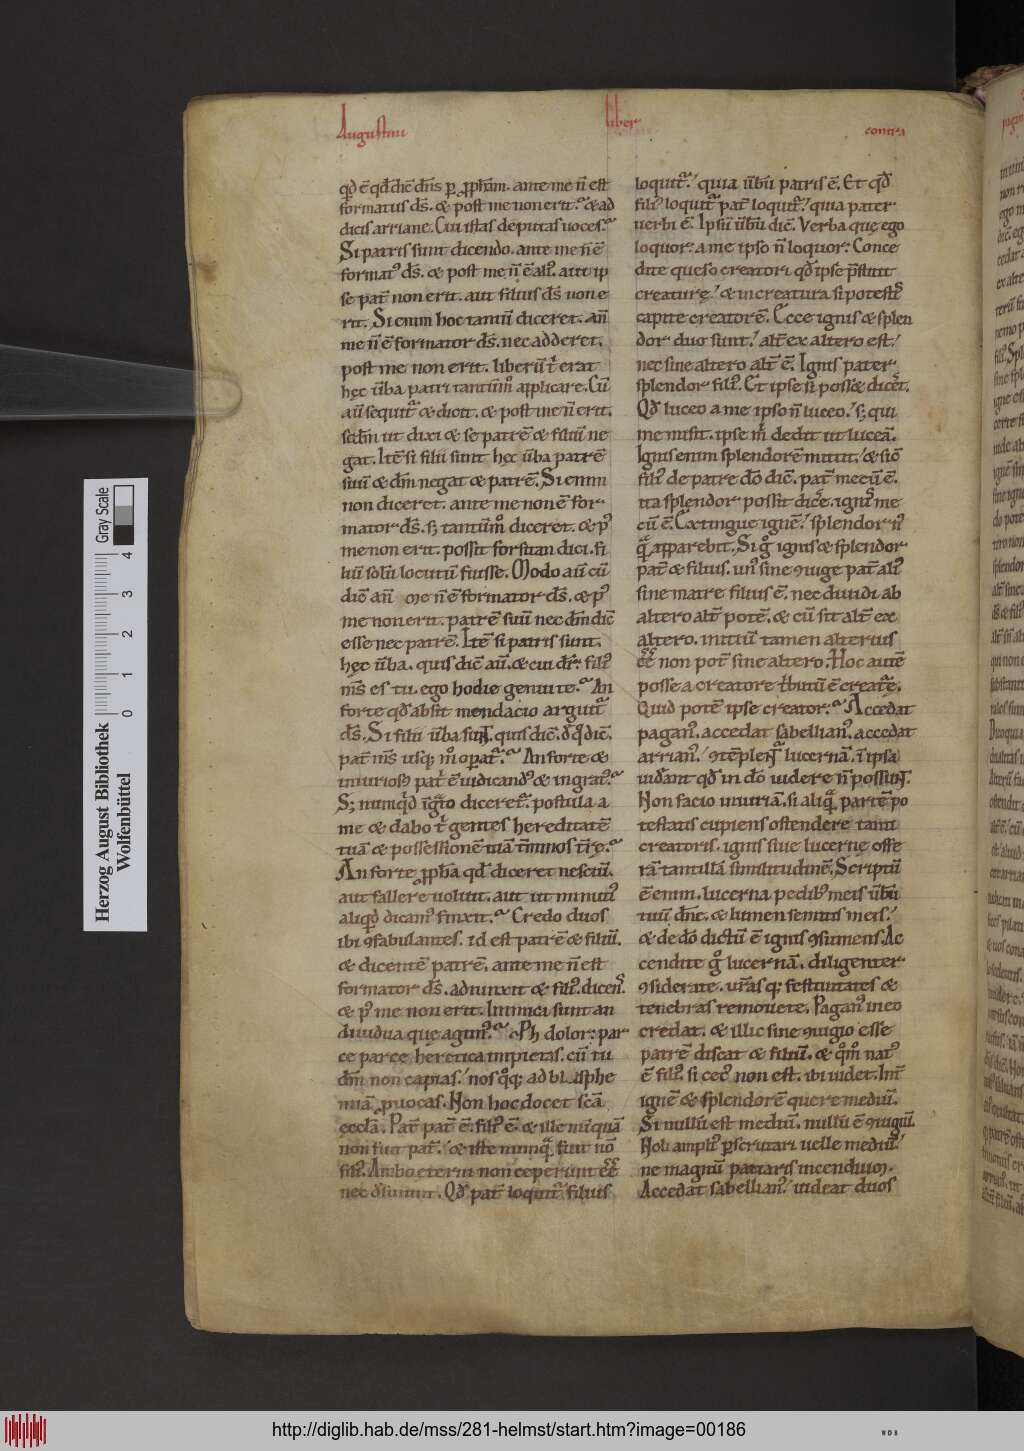 Augustini
liber
contra
qđ ē qđ dic̄ dn̄s p ꝓph̄am. ante me n̄ est
formatus ds̄. & post me non erit? & ad
dicis arriane. Cui istas deputas uoces?
Si patris sunt dicendo. ante me n̄ ē
format᷒ ds̄. & post me n̄ ē ali᷒. aut ip
se pat̄ non erit. aut filius ds̄ non e
rit. Si enim hoc tantū diceret. an̄
me n̄ ē formator ds̄. nec adderet.
post me non erit. liberū t̄ erat
hęc ūba patri tantūm᷒ applicare. Cū
aū sequit᷑ & dicit. & post me n̄ erit.
scdm̄ ut dixi & se patrē & filiū ne
gat. Itē si filii sunt hęc ūba patrē
suū & dm̄ negat & patrē. Si enim
non diceret. ante me non ē for
mator ds̄. sꝫ tantūm᷒ diceret. & p᷒
me non erit. possit forsitan dici. fi
liū solū locutū fuisse. Modo aū cū
dic̄ an̄ me n̄ ē formator ds̄. & p᷒
me non erit. patrē suū nec dm̄ dic̄
esse nec patrē. Itē si patris sunt.
hęc ūba. quis dic̄ aū. & cui dr̄. fili᷒
m̄s es tu. ego hodie genui te? An
forte qđ absit mendacio arguit᷑
ds̄. Si filii ūba sunt. quis dic̄. ł q̇d dic̄.
pat̄ m̄s usqꝫ m᷒ opat᷑? An forte &
iniurios᷒ pat̄ ē iudicand᷒ & ingrat᷒?
Sꝫ nunq̇d īg̃to diceret᷑. postula a
me & dabo t̄ gentes hereditatē
tuā & possessionē tuā t̄minos t̄rę?
An forte ꝓph̄a qđ diceret nesciuī.
aut fallere uoluit. aut ut minut᷒
aliqđ dicam᷒ finxit? Credo duos
ibi ꝯfabulantes. id est patrē & filiū.
& dicentē patrē. ante me n̄ est
formator ds̄. adiunxit & fili᷒. dicens.
& p᷒ me non erit. Inimica sunt an
diuidua que agim᷒? Ph dolor: par
ce parce heretica impietas. cū tu
dm̄ non capias. nos q̊qꝫ ad blasphe
miā ꝓuocas. Non hoc docet scā
eccła. Pat̄ pat̄ ē. fili᷒ ē. & ille nūquā
non fuit pat̄. & iste nunq̃ fuit nō
fili᷒. Ambo eterni non ceperunt ēē
nec desinunt. Qđ pat̄ loquit᷑ filius
loquit᷑. quia ūbū patris ē. Et qđ
fili᷒ loquit᷑ pat̄ loquit᷑. quia pater
uerbi ē. Ipsū ūbū dic̄. Verba quę ego
loquor. a me ipso n̄ loquor: Conce
dite queso creatori qđ ipse p̄stitit
creaturę. & in creatura si potestis
capite creatorē. Ecce ignis & splen
dor duo sunt. alt̄ ex altero est.
nec sine altero alt̄ ē. Ignis pater.
splendor fili᷒. Et ipse si possē dicēt.
Qđ luceo a me ipso n̄ luceo. sꝫ qui
me misit. ipse m̄ dedit ut luceā.
Ignis enim splendorē mittit. & sic̄
fili᷒ de patre dō dic̄. pat̄ mecū ē.
ita splendor possit dic̄e. ignis me
cū ē. Extingue ignē. splendor n̄
q̃ apparebit. Si g̊ ignis & splendor
pat̄ & filius. un᷒ sine ꝯiuge pat̄ ali᷒
sine matre filius ē. nec diuidi ab
altero alt̄ potē. & cū sit alt̄ ex
altero. initiū tamen alterius
ēē non pot̄ sine altero. Hoc autē
posse a creatore t̄butū ē creat᷑ę.
Quid potē ipse creator? Accedat
pagan᷒. accedat sabellian᷒. accedat
arrian᷒. ꝯtēplent᷑ lucernā. ī ipsa
uideant qđ in dō uidere n̄ possunt.
Non facio iniuriā. si aliq̃ partē po
testatis cupiens ostendere tanti
creatoris. ignis siue lucernę offe
rā tantillā similitudinē. Scriptū
ē enim. lucerna pedib᷒ meis ūbū
tuū dn̄e. & lumen semitis meis.
& de dō dictū ē ignis ꝯsumens. Ac
cendite g̊ lucernā. diligenter
ꝯsiderate. ur̄as qꝫ festiuitates &
tenebras remouete. Pagan᷒ in eo
credat. & illic sine ꝯiugio esse
patrē discat & filiū. & q̊m̊ nat᷒
ē fili᷒. si cec᷒ non est. ibi uidet. Int̄
ignē & splendorē quere mediū.
Si nullū est mediū. nullū ē ꝯiugiū.
Noli ampli᷒ pscrutari uelle mediū.
ne magnū patiaris incendium.
Accedat sabellian᷒. uideat duos
Herzog August Bibliothek
Wolfenbüttel
0 1 2 3 4
Gray Scale
http://diglib.hab.de/mss/281-helmst/start.htm?image=00186
WDB